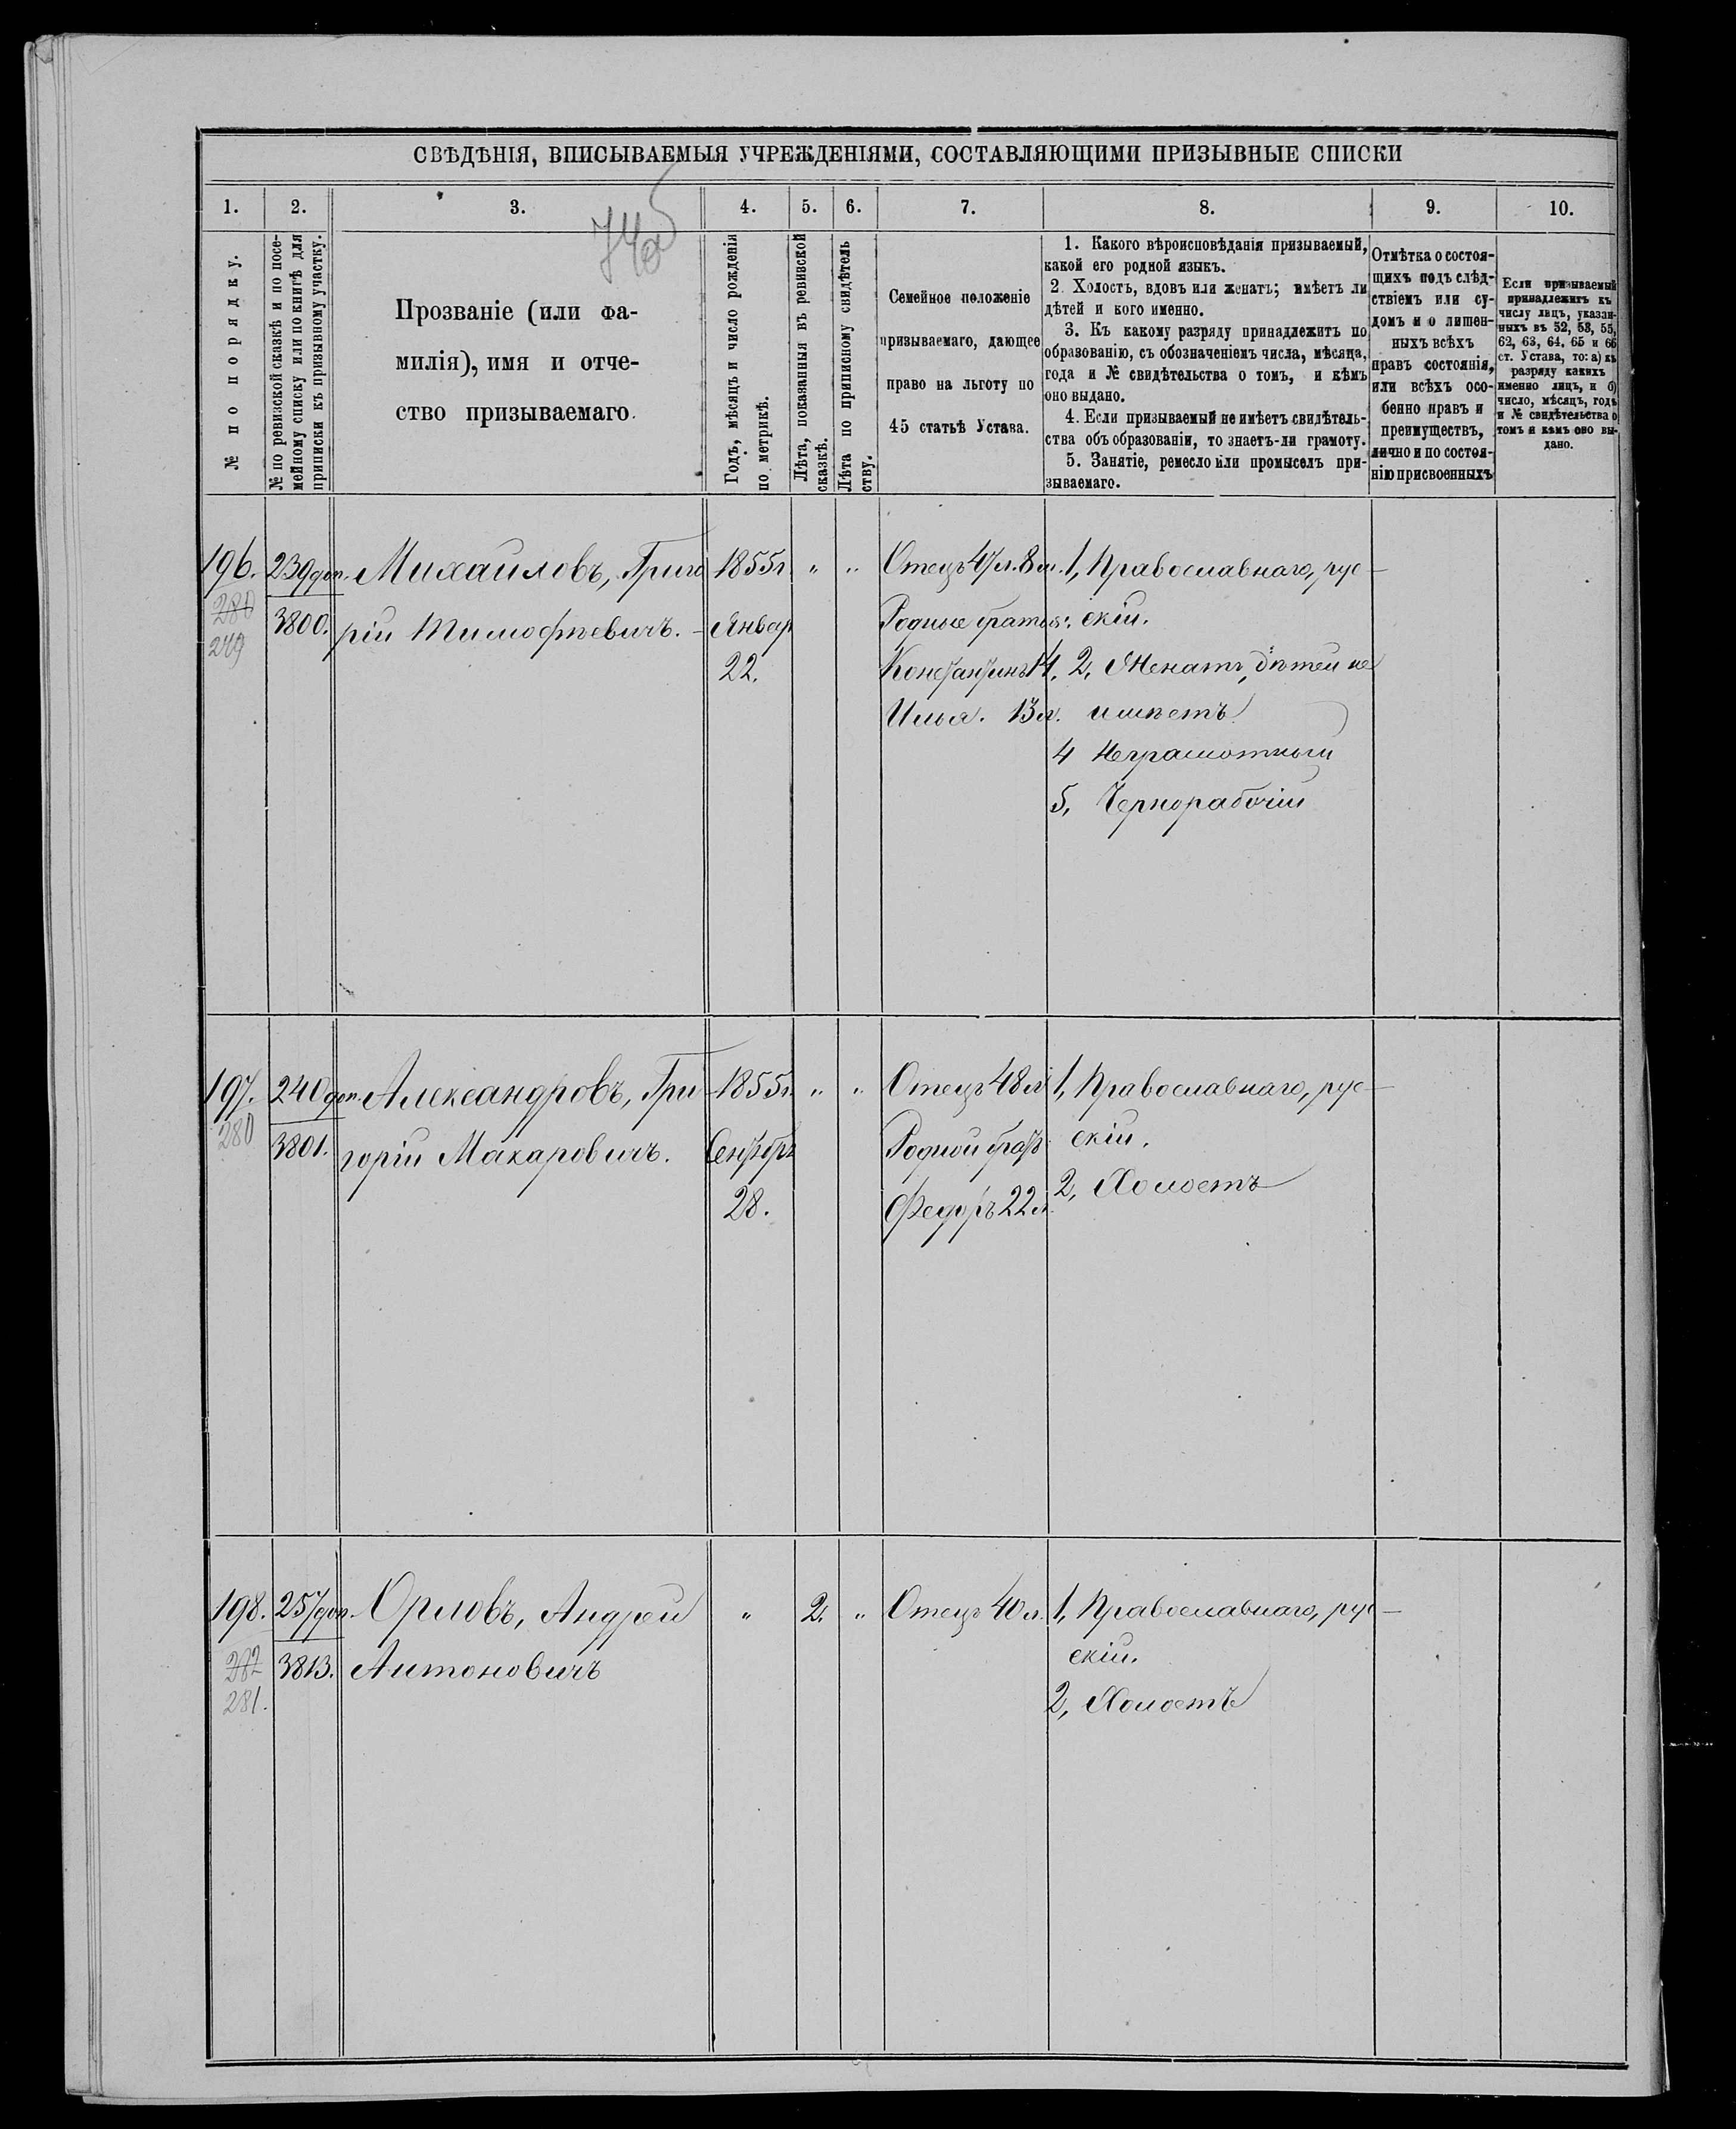 СВѢДѢНІЯ, ВПИСЫВАЕМЫЯ УЧРЕЖДЕНІЯМИ, СОСТАВЛЯЮЩИМИ ПРИЗЫВНЫЕ СПИСКИ
1. 2. 3. 4. 5. 6. 7. 8. 9. 10.
№ по порядку.
№ по ревизской сказкѣ и по посе-
мейному списку или по книгѣ для
приписки къ призывному участку.
Прозваніе (или фа-
милія), имя и отче-
ство призываемаго.
Годъ, мѣсяцъ и число рожденія
по метрикѣ.
Лѣта, показанныя въ ревизской
сказкѣ.
Лѣта по приписному свидѣтель
ству.
Семейное положеніе
призываемаго, дающее
право на льготу по
45 статьѣ Устава.
1. Какого вѣроисповѣданія призываемый,
какой его родной языкъ.
2. Холостъ, вдовъ или женатъ; имѣетъ ли
дѣтей и кого именно.
3. Къ какому разряду принадлежитъ по
образованію, съ обозначеніемъ числа, мѣсяца,
года и № свидѣтельства о томъ, и кѣмъ
оно выдано.
4. Если призываемый не имѣетъ свидѣтель-
ства объ образованіи, то знаетъ-ли грамоту.
5. Занятіе, ремесло или промыселъ при-
зываемаго.
Отмѣтка о состоя-
щихъ подъ слѣд-
ствіемъ или су-
домъ и о лишен-
ныхъ всѣхъ
правъ состоянія,
или всѣхъ осо-
бенно правъ и
преимуществъ,
лично и по состоя-
нію присвоенныхъ
Если призываемый
принадлежитъ къ
числу лицъ, указан-
ныхъ въ 52, 53, 55,
62, 63, 64, 65 и 66
ст. Устава, то: а) къ
разряду какихъ
именно лицъ, и б)
число, мѣсяцъ, годъ
и № свидѣтельства о
томъ и кѣмъ оно вы-
дано.
196.
280
279
239 доп.
3800.
Михайловъ, Григо
рій Тимофѣевичъ.
1855 г.
Январ
22.
" "
Отецъ 47 л. 8 м.
Родные братья:
Константинъ 14.
Илья. 13 л.
1, Православнаго, рус-
скій.
2, Женатъ, дѣтей не
имѣетъ
4 Неграмотный
5, Чернорабочій
197.
280
240 доп.
3801.
Александровъ, Гри
горій Макаровичъ.
1855 г.
Сентябрь
28.
" "
Отецъ 48 л
Родной братъ
Федоръ 22 л.
1, Православнаго, рус-
скій.
2, Холостъ
198.
282
281.
257 доп.
3813.
Орловъ, Андрей
Антоновичъ
" 2. "
Отецъ 40 л.
1, Православнаго, рус-
скій.
2, Холостъ